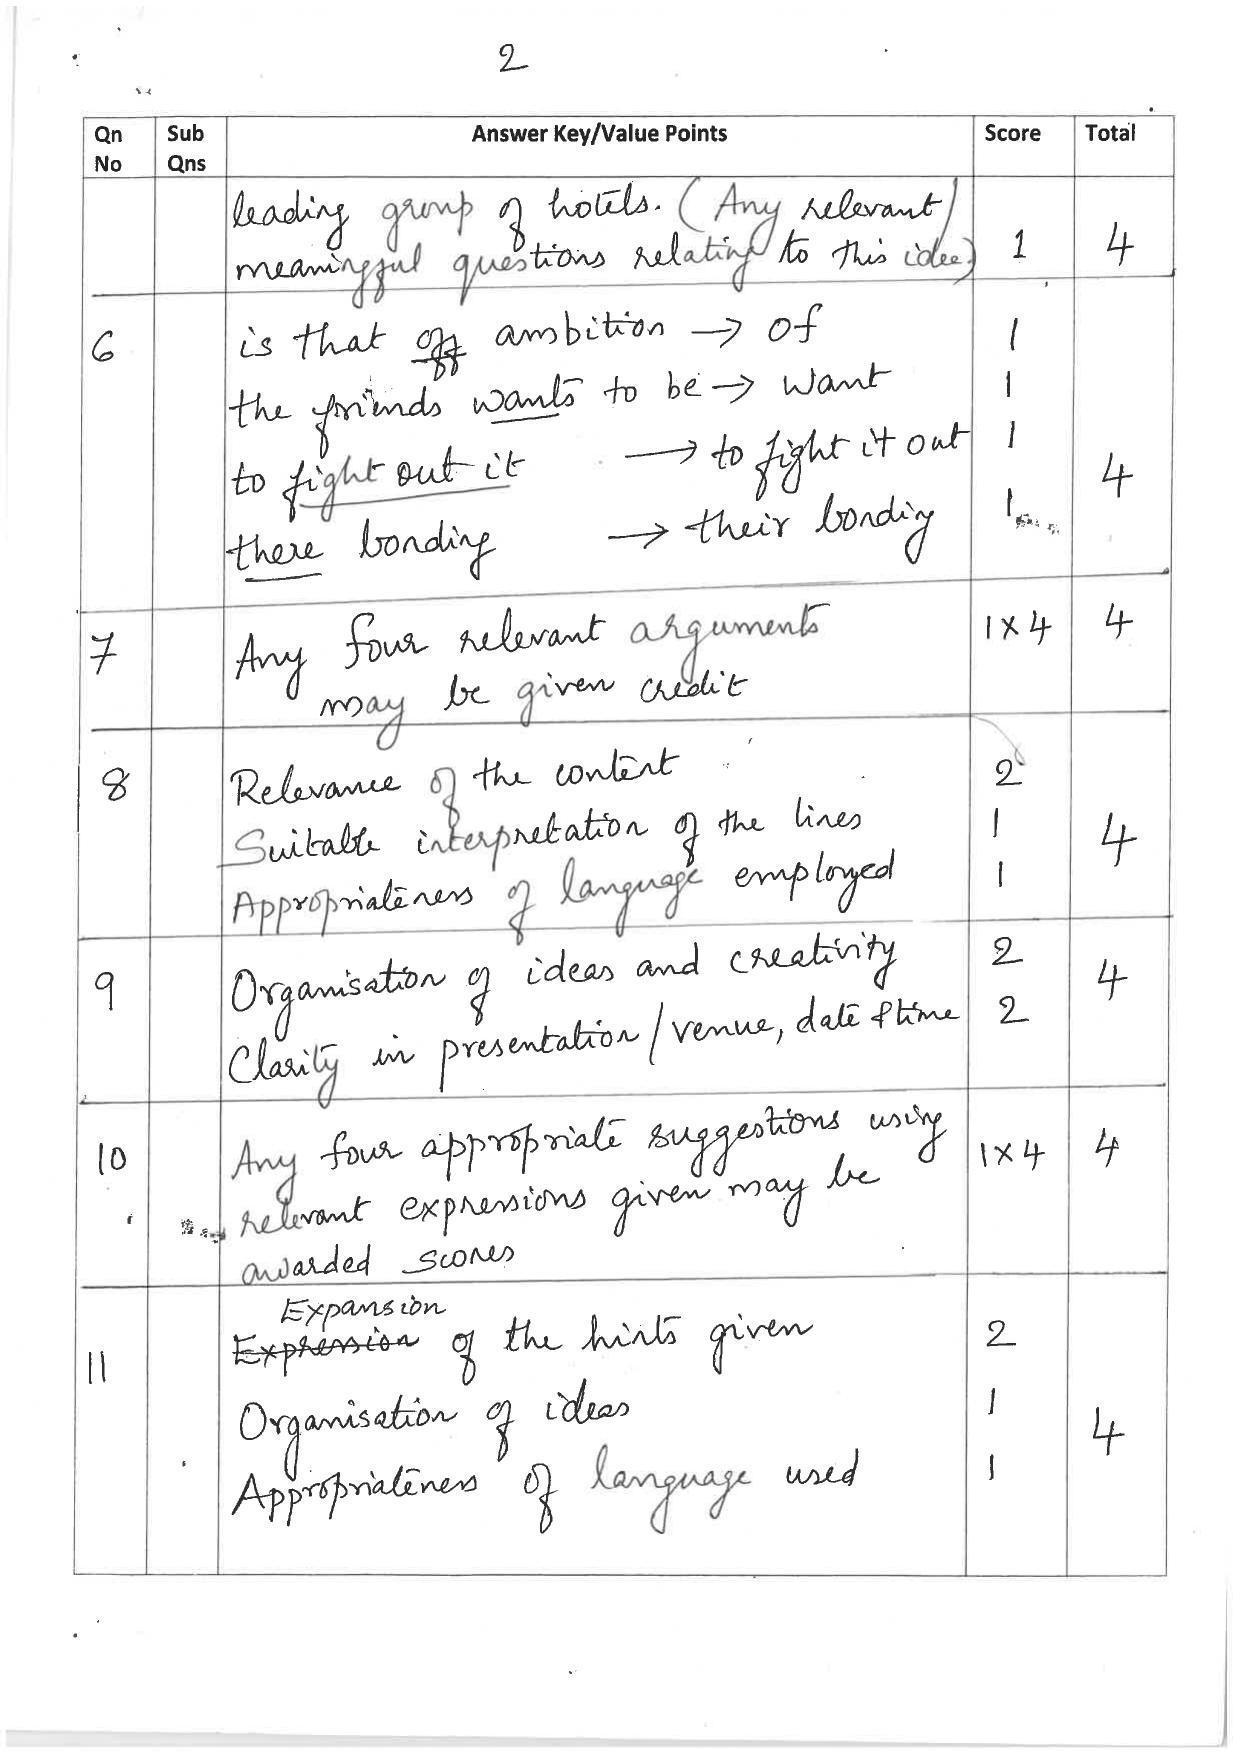 2
Qn No | Sub Qns | Answer Key/Value Points | Score | Total
leading group of hotels. (Any relevant/
meaningful questions relating to this idea) 1 4
6 is that off ambition → of 1
the friends wants to be → want 1
to fight out it → to fight it out 1 4
there bonding → their bonding 1
7 Any four relevant arguments 1 x 4 4
may be given credit
8 Relevance of the content 2
Suitable interpretation of the lines 1 4
Appropriateness of language employed 1
9 Organisation of ideas and creativity 2 4
Clarity in presentation/venue, date & time 2
10 Any four appropriate suggestions using 1 x 4 4
relevant expressions given may be
awarded scores
Expansion
11 Expression of the hints given 2
Organisation of ideas 1 4
Appropriateness of language used 1